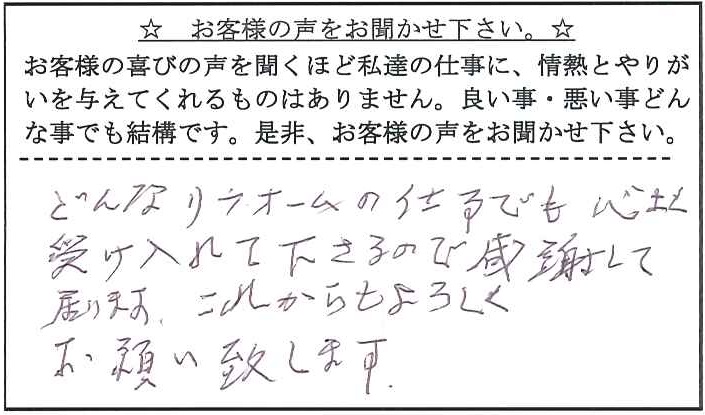 ☆ お客様の声をお聞かせ下さい。☆
お客様の喜びの声を聞くほど私達の仕事に、情熱とやりが
いを与えてくれるものはありません。良い事・悪い事どん
な事でも結構です。是非、お客様の声をお聞かせ下さい。
どんなリフォームの仕事でも心よく
受け入れて下さるので感謝して
居ります。これからもよろしく
お願い致します。